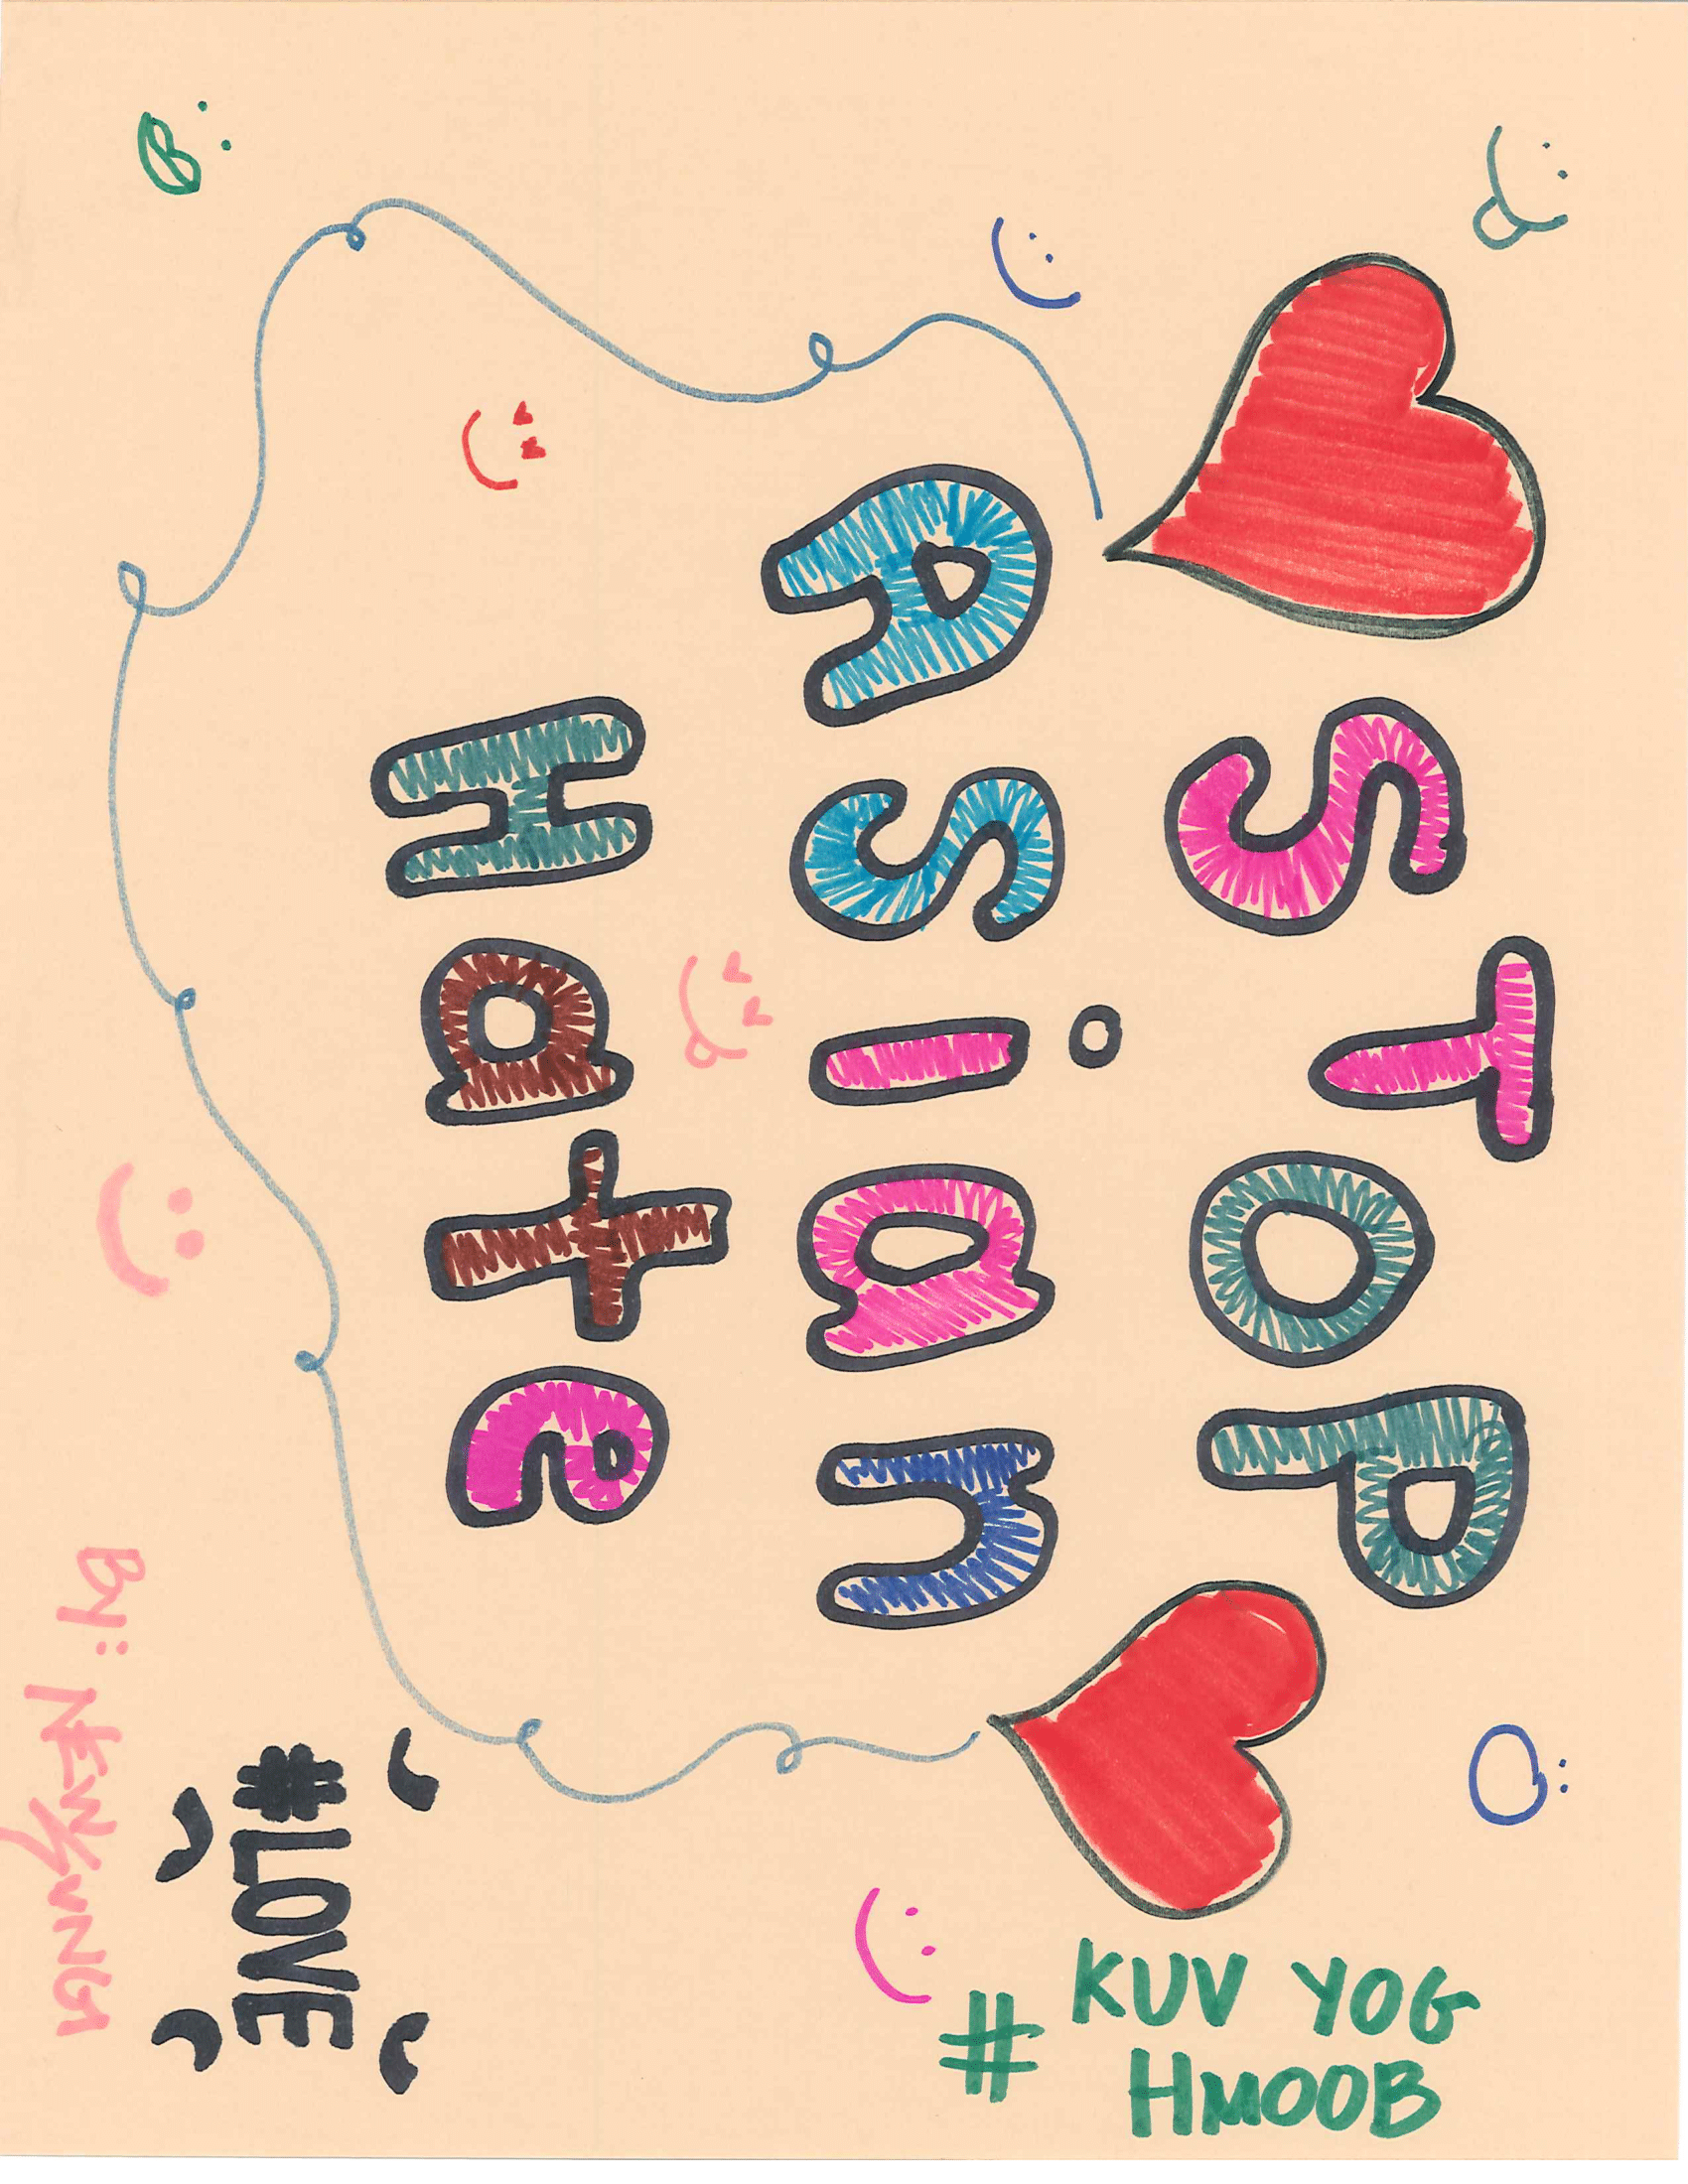 STOP
Asian
Hate
# KUV YOG
HMOOB
#LOVE
By: